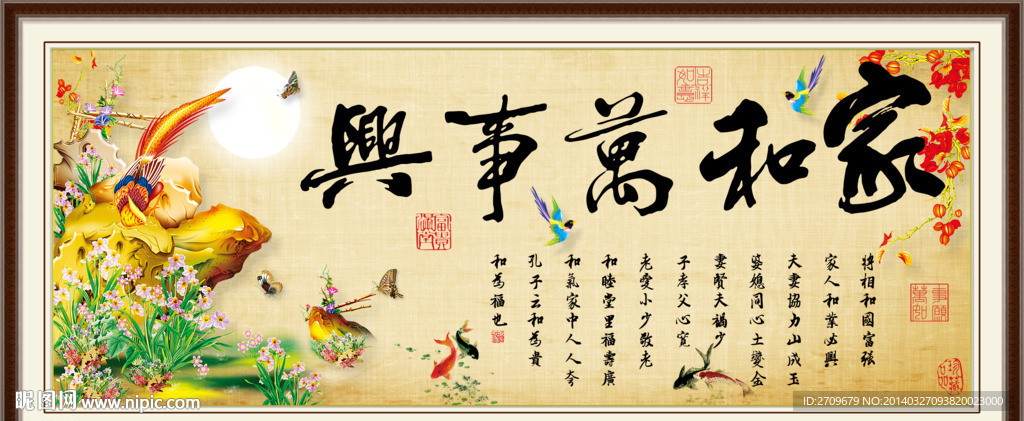 家和萬事興
將相和國富强
家人和業必興
夫妻協力山成玉
婆媳同心土變金
妻賢夫禍少
子孝父心寬
老愛小少敬老
和睦堂里福壽廣
和氣家中人人夸
孔子云和為貴
和為福也
吉祥如意
富貴
事願
萬如
珍藏
昵图网 www.nipic.com
ID:2709679 NO:20140327093820023000